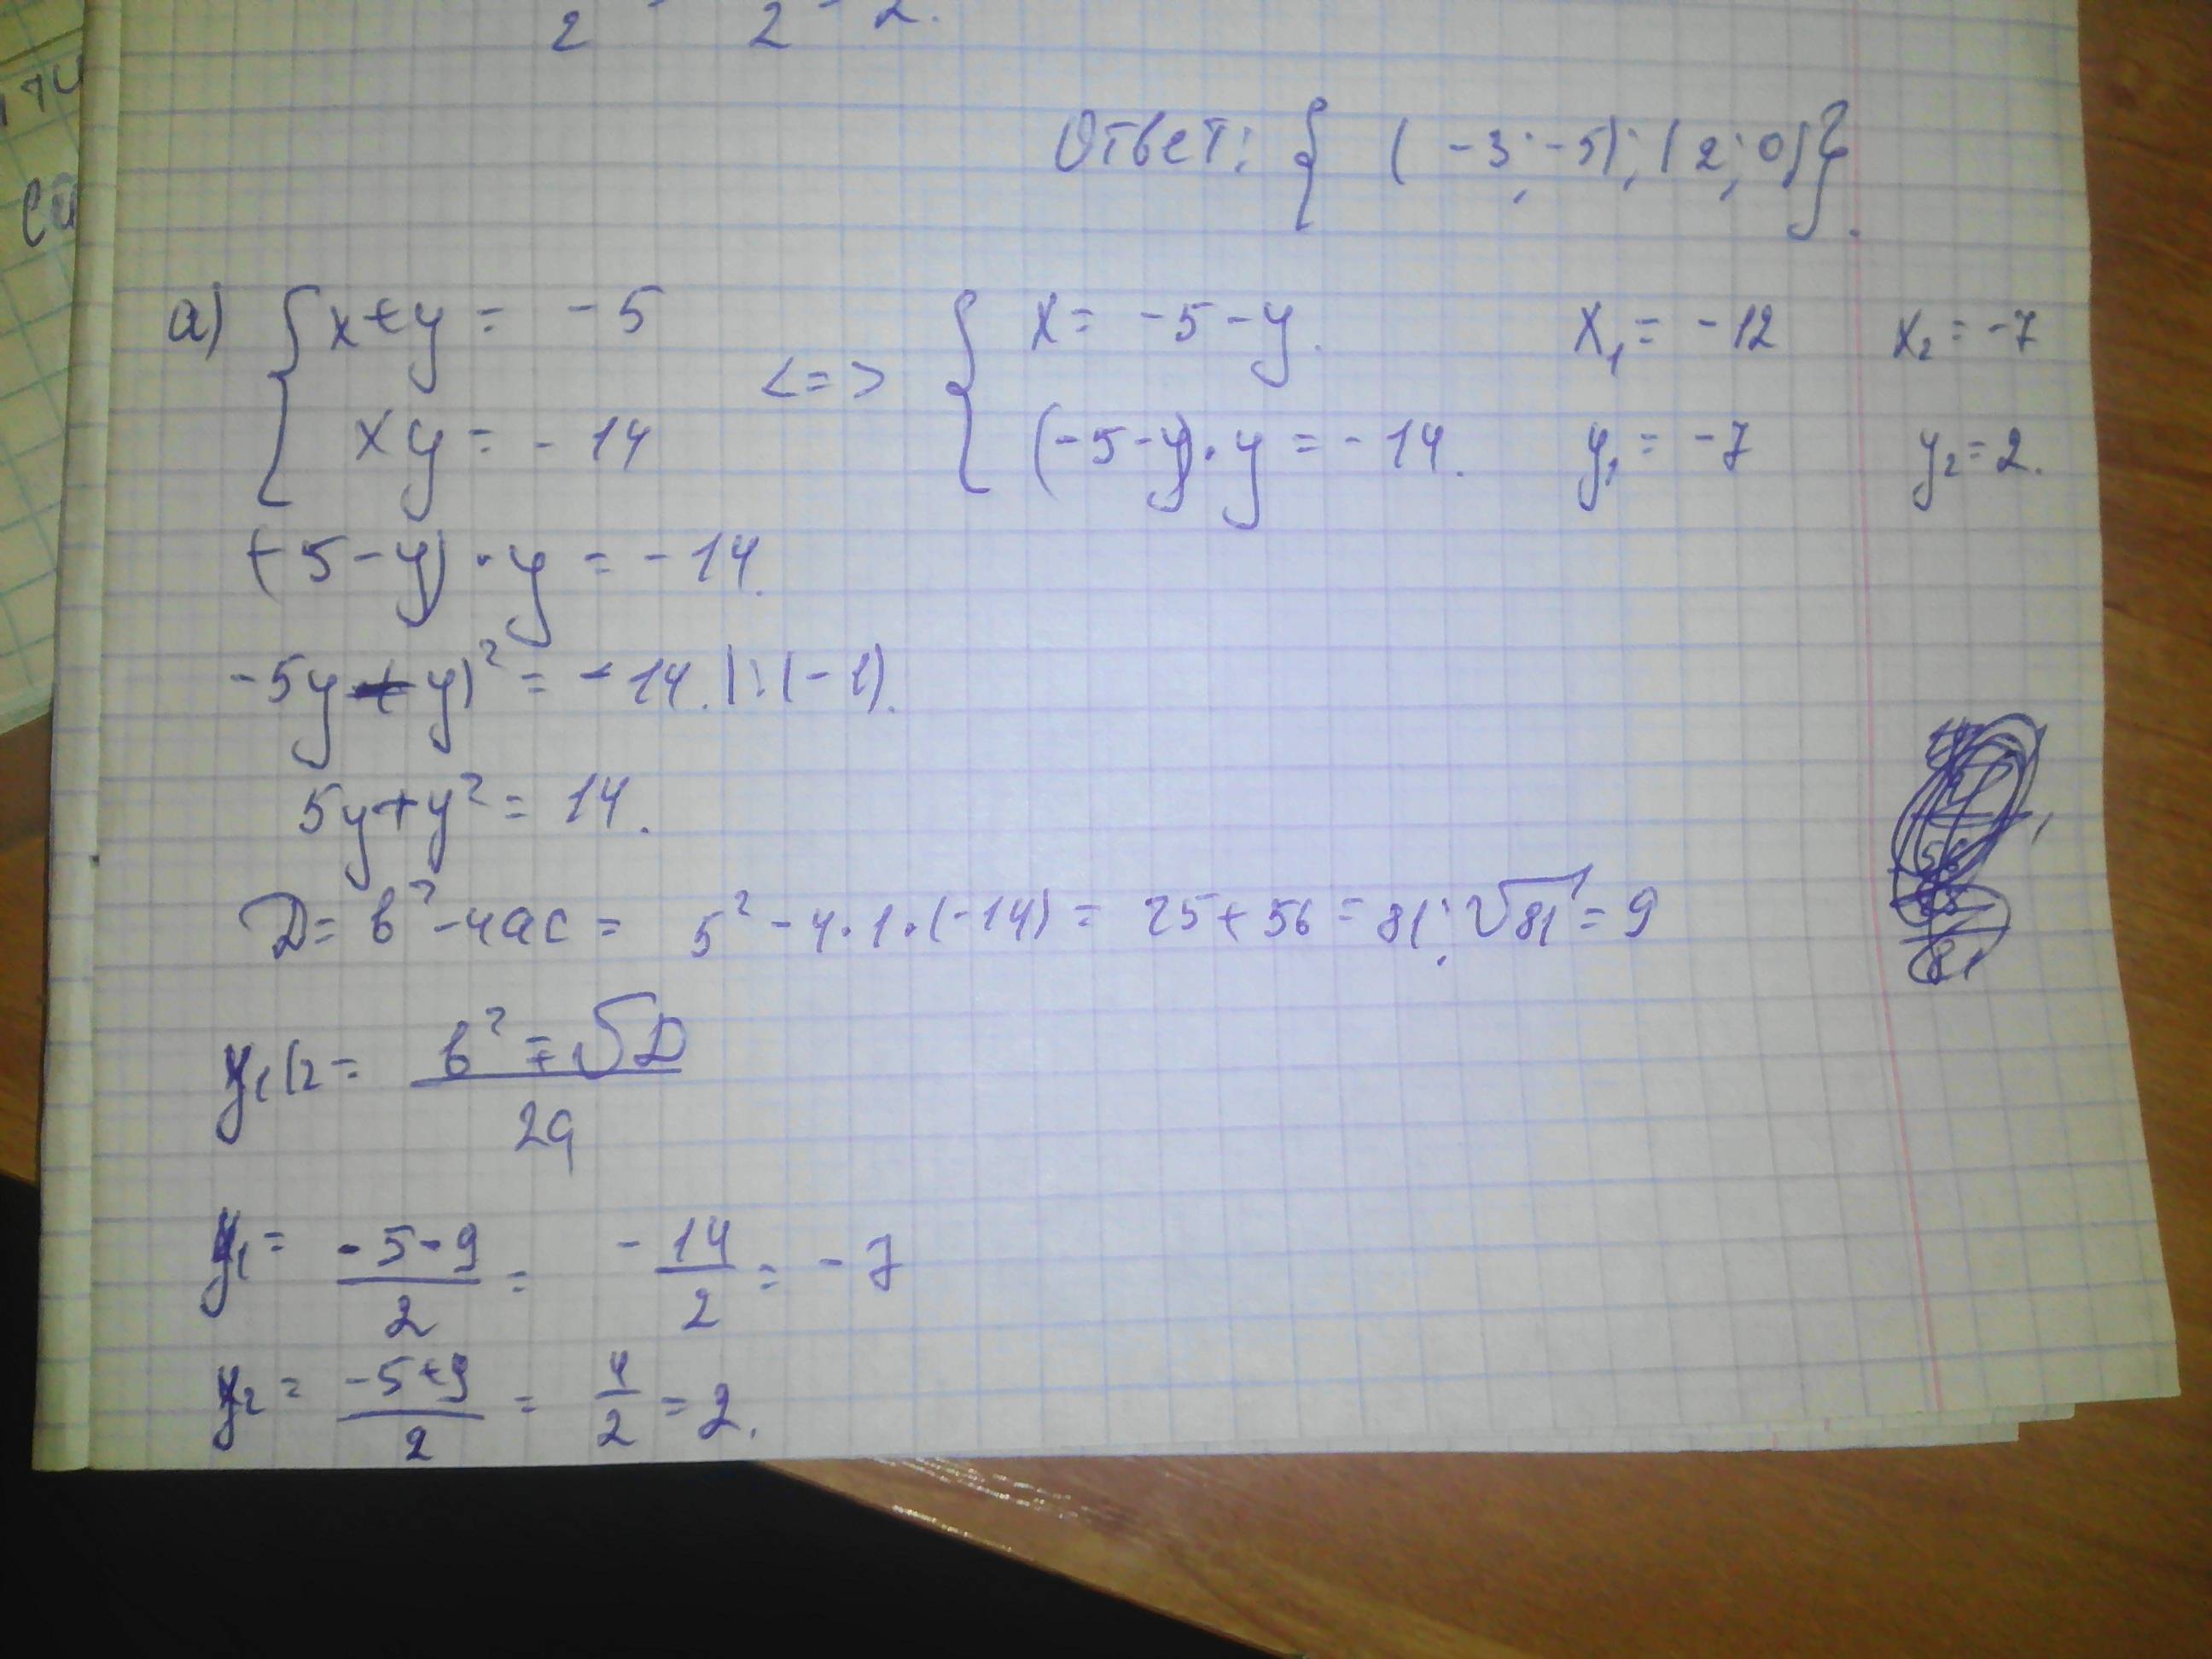 2 2 2.
Ответ: { (-3; -5); (2; 0)}.
а) { x+y = -5 <=> { x = -5-y. x₁ = -12 x₂ = -7
xy = -14 (-5-y)·y = -14. y₁ = -7 y₂ = 2.
(-5-y)·y = -14.
-5y - y)² = -14. |:(-1).
5y+y² = 14.
D = b²-4ac = 5²-4·1·(-14) = 25+56 = 81; √81 = 9
y₁/₂ = b² ∓ √D
2a
y₁ = -5-9 / 2 = -14 / 2 = -7
y₂ = -5+9 / 2 = 4 / 2 = 2.